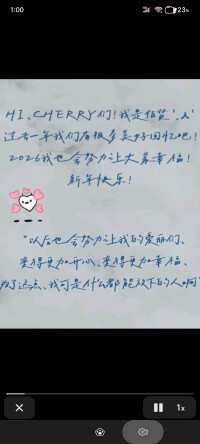 1:00
23%
HI、CHERRY们！我是佰蓝、人
过去一年我们有很多美好回忆吧！
2026我也会努力让大家幸福！
新年快乐！
“以后也会努力让我的爱丽们、
变得更加开心、变得更加幸福、
为了这点、我可是什么都能放下的人啊”
1x